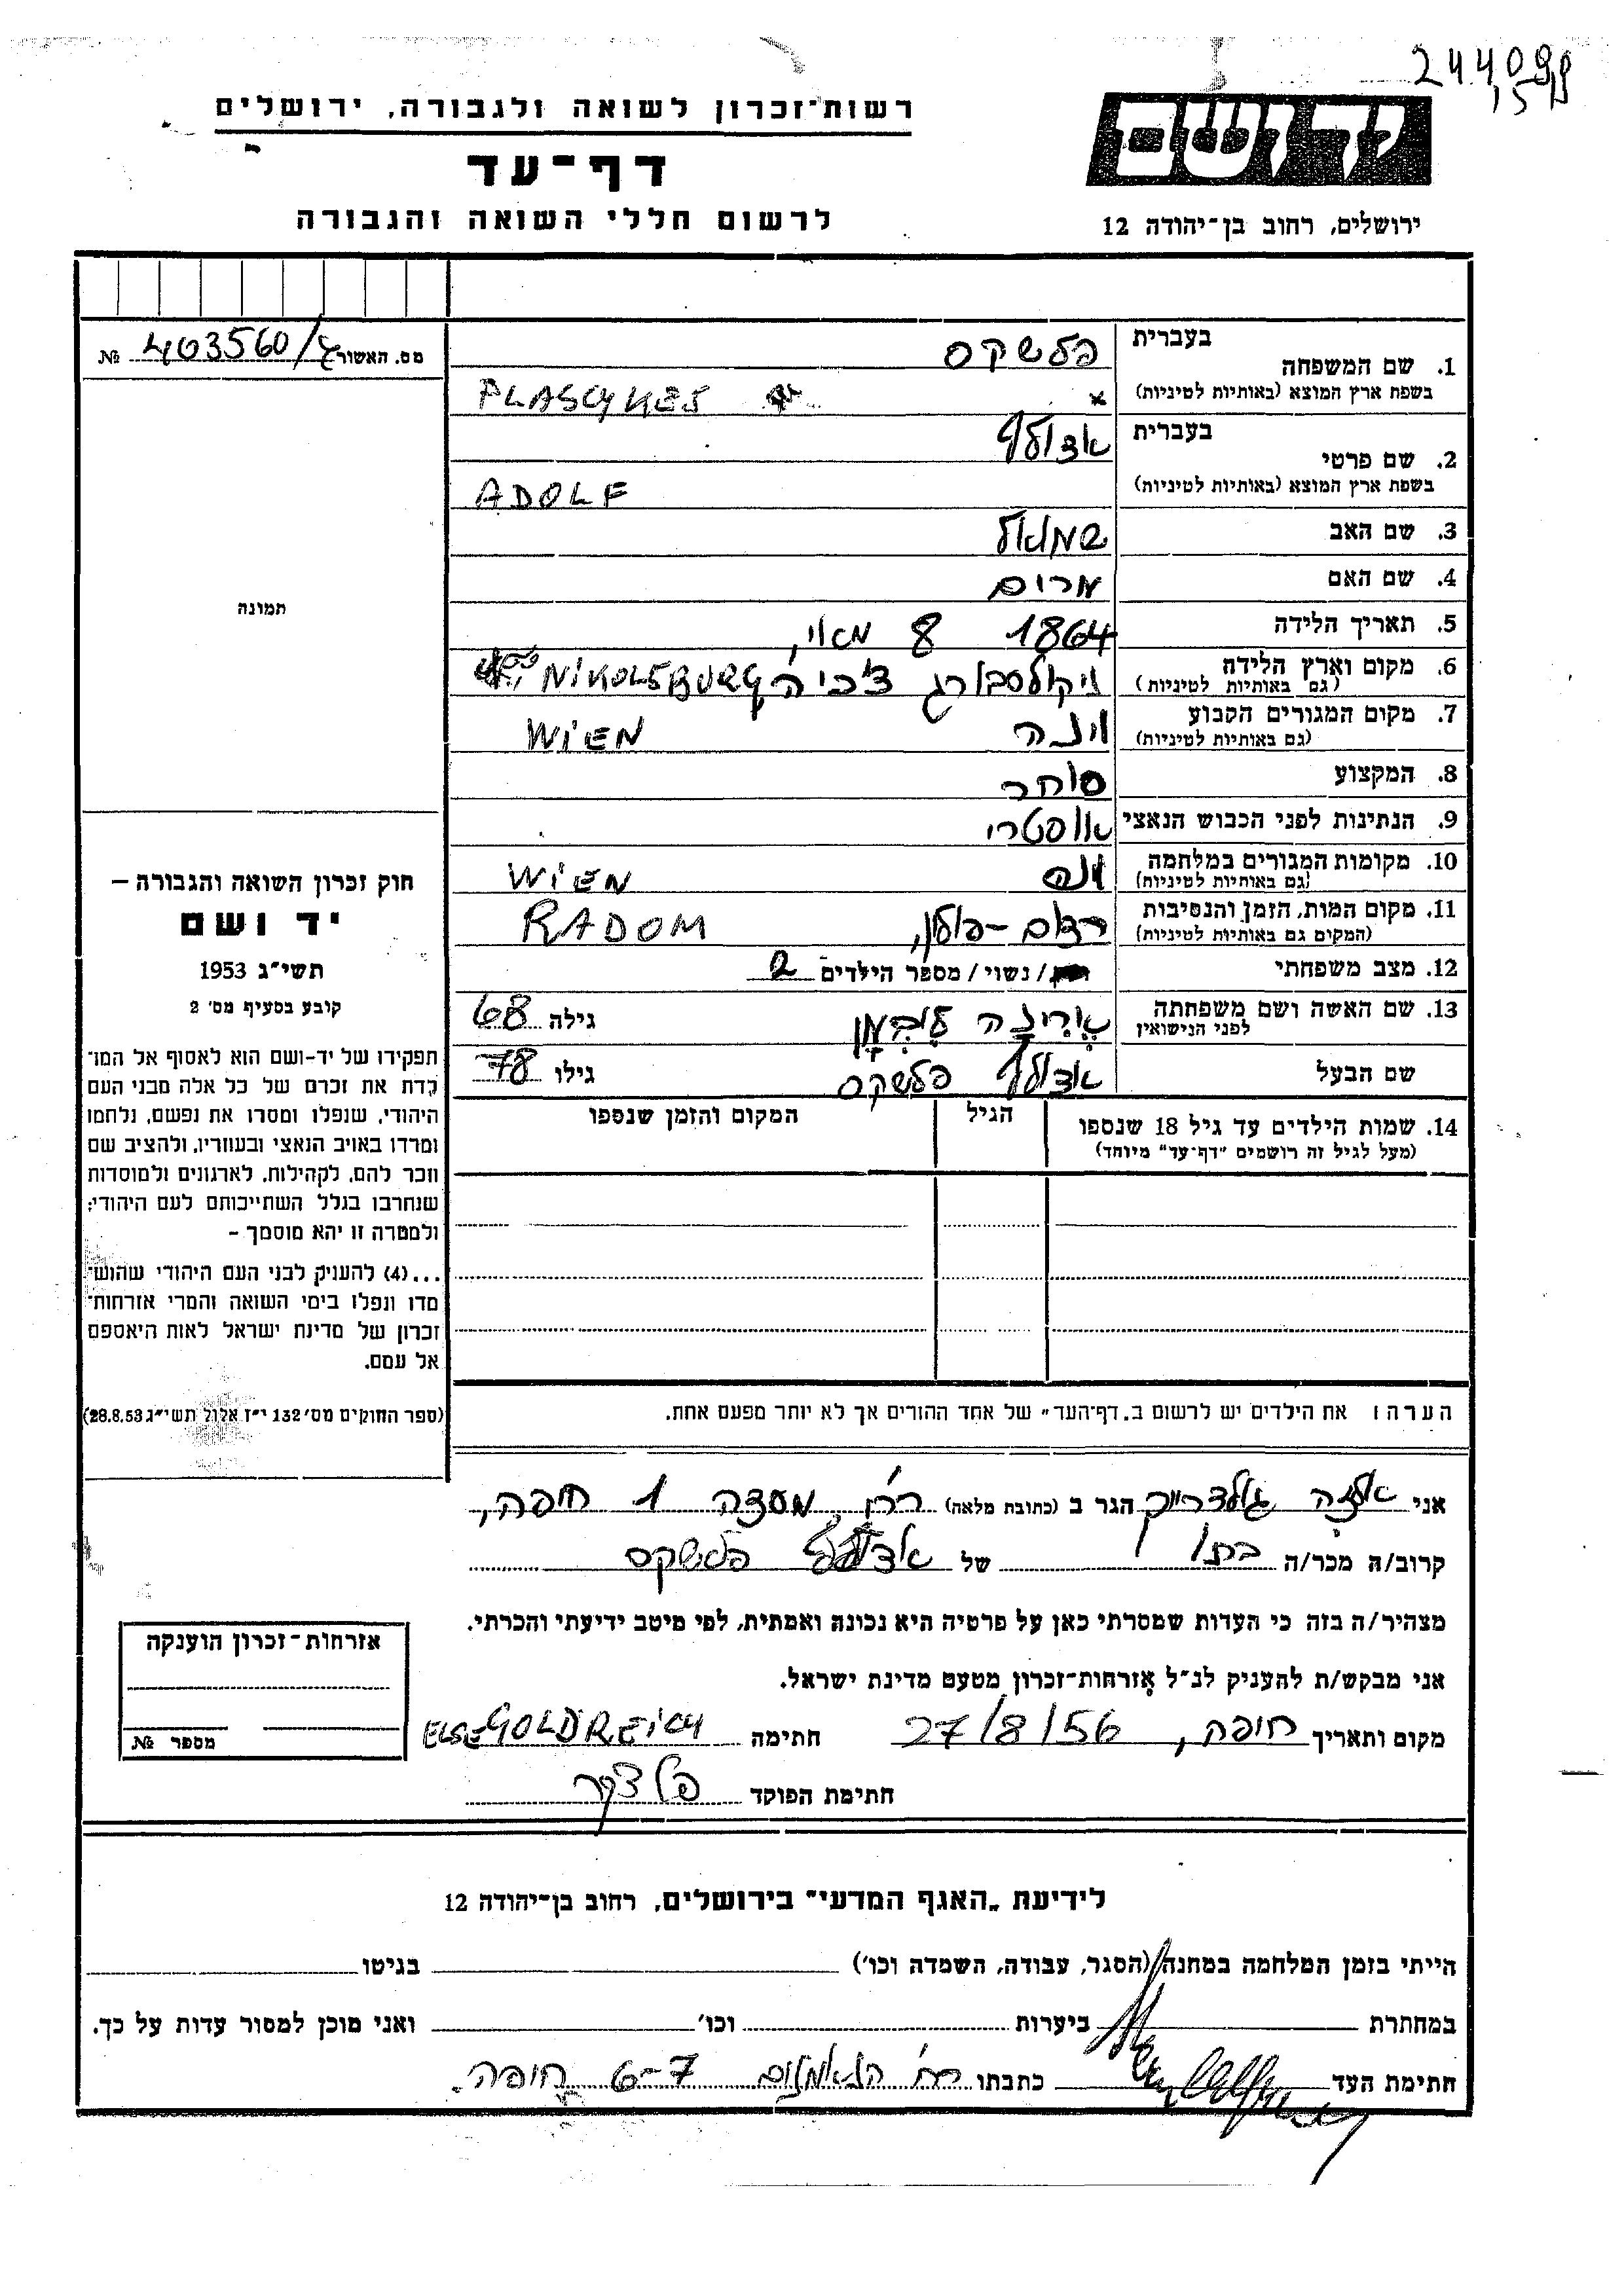 244099
15
רשות־זכרון לשואה ולגבורה, ירושלים
דף־עד
לרשום חללי השואה והגבורה
יד ושם
ירושלים, רחוב בן־יהודה 12
מס. האשור 403560/ № 
בעברית
1. שם המשפחה פלשקס
בשפת ארץ המוצא (באותיות לטיניות) PLASCHKES
בעברית
2. שם פרטי אדולף
בשפת ארץ המוצא (באותיות לטיניות) ADOLF
3. שם האב שמואל
4. שם האם מרים
5. תאריך הלידה 1864 8 מאי,
6. מקום וארץ הלידה ניקולסבורג צ'כיה NIKOLSBURG
(גם באותיות לטיניות)
7. מקום המגורים הקבוע וינה WIEN
(גם באותיות לטיניות)
8. המקצוע סוחר
9. הנתינות לפני הכבוש הנאצי אוסטרי
10. מקומות המגורים במלחמה וינה WIEN
(גם באותיות לטיניות)
11. מקום המות, הזמן והנסיבות רדום - פולין, RADOM
(המקום גם באותיות לטיניות)
12. מצב משפחתי / נשוי / מספר הילדים 2
13. שם האשה ושם משפחתה גילה 68
לפני הנישואין
שם הבעל אדולף פלשקס גילו 78
14. שמות הילדים עד גיל 18 שנספו הגיל המקום והזמן שנספו
(מעל לגיל זה רושמים "דף־עד" מיוחד)
הערה: את הילדים יש לרשום ב„דף־העד" של אחד ההורים אך לא יותר מפעם אחת.
תמונה
חוק זכרון השואה והגבורה —
יד ושם
תשי"ג 1953
קובע בסעיף מס' 2
תפקידו של יד-ושם הוא לאסוף אל המו־
לדת את זכרם של כל אלה מבני העם
היהודי, שנפלו ומסרו את נפשם, נלחמו
ומרדו באויב הנאצי ובעוזריו, ולהציב שם
וזכר להם, לקהילות, לארגונים ולמוסדות
שנחרבו בגלל השתייכותם לעם היהודי;
ולמטרה זו יהא מוסמך —
...(4) להעניק לבני העם היהודי שהוש־
מדו ונפלו בימי השואה והמרי אזרחות־
זכרון של מדינת ישראל לאות היאספם
אל עמם.
(ספר החוקים מס' 132 י"ז אלול תשי"ג 28.8.53)
אני אלזה גולדרייך הגר ב (כתובת מלאה) רח' מסדה 1 חיפה,
קרוב/ה מכר/ה בתו של אדולף פלשקס
מצהיר/ה בזה כי העדות שמסרתי כאן על פרטיה היא נכונה ואמתית, לפי מיטב ידיעתי והכרתי.
אני מבקש/ת להעניק לנ"ל אזרחות־זכרון מטעם מדינת ישראל.
מקום ותאריך חיפה, 27/8/56 חתימה ELSE GOLDREICH
חתימת הפוקד
אזרחות־זכרון הוענקה
מספר №
לידיעת „האגף המדעי" בירושלים, רחוב בן־יהודה 12
הייתי בזמן המלחמה במחנה (הסגר, עבודה, השמדה וכו') בגיטו
במחתרת ביערות וכו' ואני מוכן למסור עדות על כך.
חתימת העד כתבתו 6-7 חיפה.